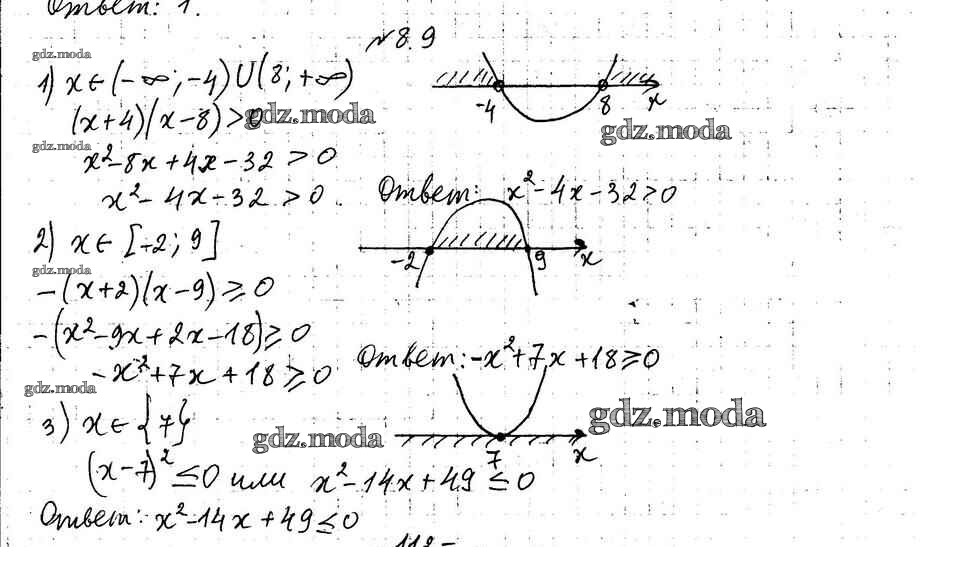 Ответ: 1.
№8.9
gdz.moda
1) x∈(-∞; -4)∪(8; +∞)
-4 8 x
(x+4)(x-8)>0
gdz.moda
gdz.moda
gdz.moda
x²-8x+4x-32>0
x²-4x-32>0. Ответ: x²-4x-32>0
2) x∈[-2; 9]
-2 9 x
gdz.moda
-(x+2)(x-9)≥0
-(x²-9x+2x-18)≥0
-x²+7x+18≥0 Ответ: -x²+7x+18≥0
gdz.moda
3) x∈{7}
gdz.moda
gdz.moda
7 x
(x-7)²≤0 или x²-14x+49≤0
Ответ: x²-14x+49≤0